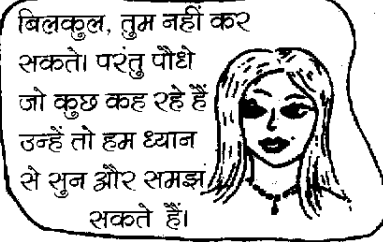 बिलकुल, तुम नहीं कर
सकते। परंतु पौधे
जो कुछ कह रहे हैं
उन्हें तो हम ध्यान
से सुन और समझ
सकते हैं।